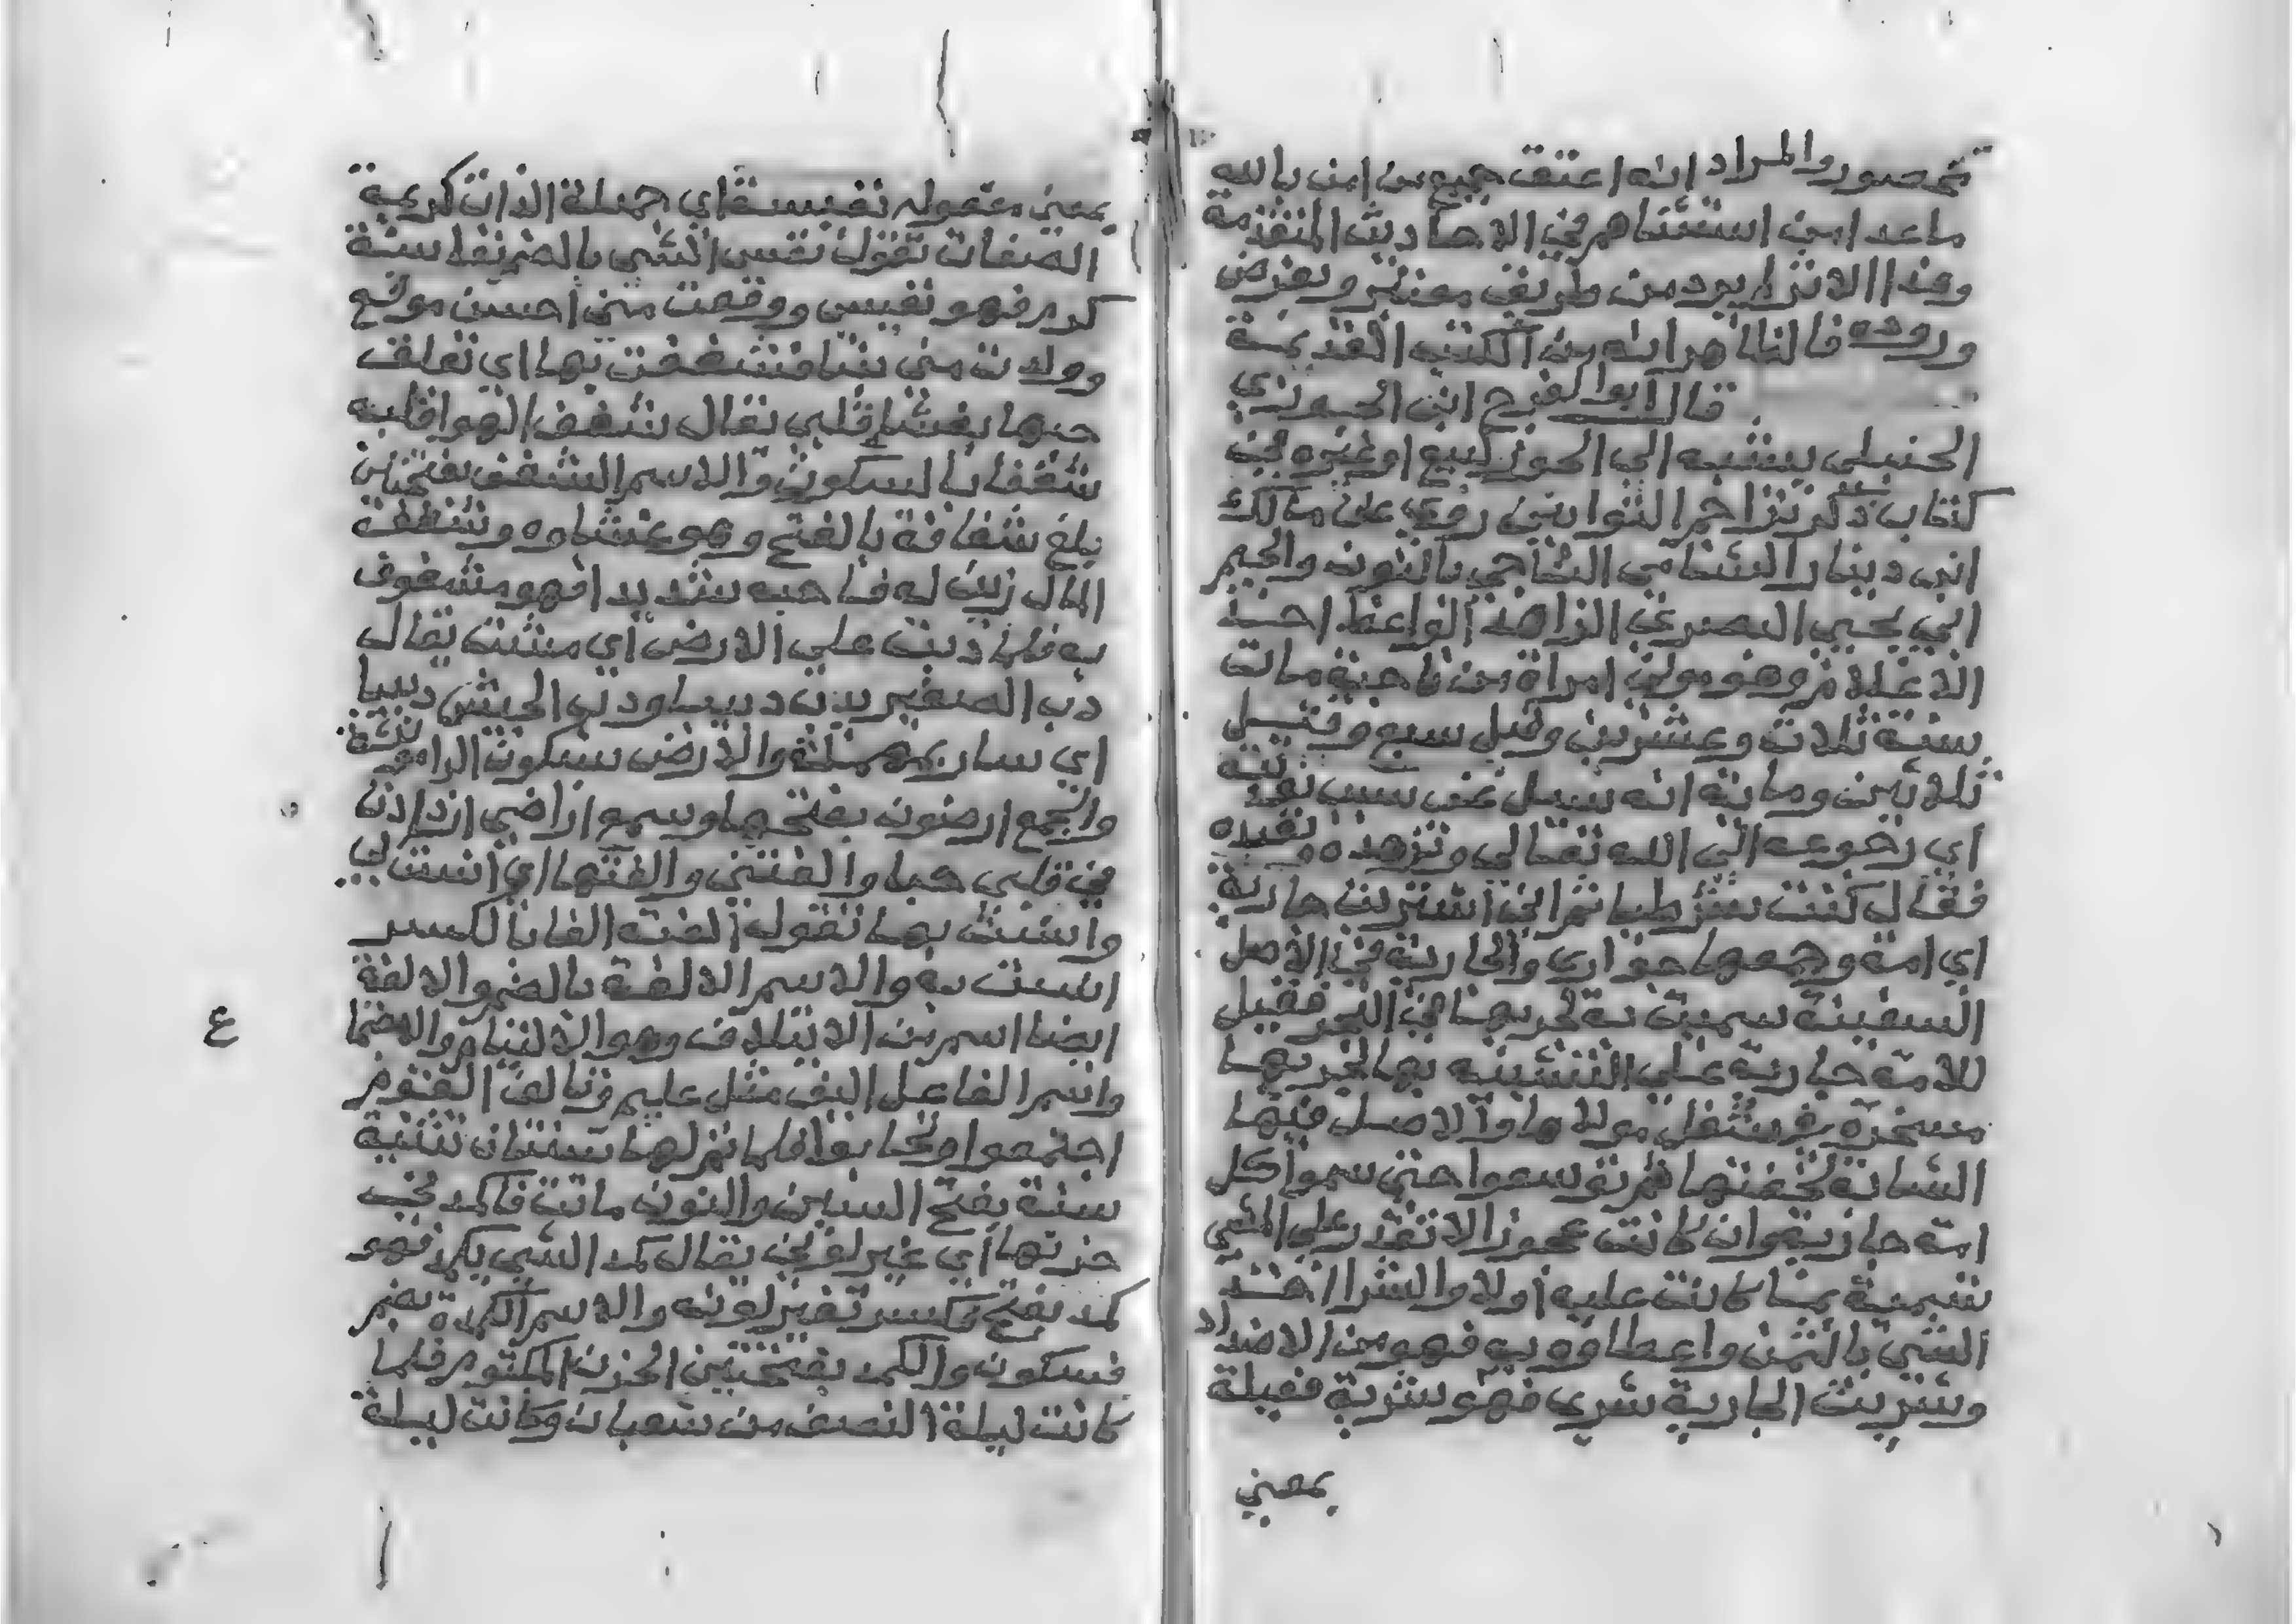 محصور والمراد انه اعتق جميع من امن بالله
ما عدا من استثناهم في الاحاديث المتقدمة
وهذا الاثر لم يرد من طريق معتبر وبفرض
وروده فالظاهر انه من الكتب القديمة
قال ابو الفرج ابن الجوزي
الحنبلي ينسبه الي الجوز لبيع او غيره في
كتاب ذكر تراجم التوابين روي عن مالك
ابن دينار الشامي الناجي بالنون والجيم
ابي يحيي البصري الزاهد الواعظ احد
الاعلام وهو مولي امراة من ناجية مات
سنة ثلاث وعشرين وقيل سبع وقيل
ثلاثين ومايه انه سيل عن سبب توبته
اي رجوعه الي الله تعالي وتزهده وتعبده
فقال كنت شرطيا ثم اني اشتريت جارية
اي امة وجمعها جواري والجارية في الاصل
السفينة سميت به لجريها في البحر فقيل
للامة جارية علي التشبيه بها لجريها
مسخرة في شغل مولاها والاصل فيها
الشابة لخفتها ثم توسعوا حتي سموا كل
امة جارية وان كانت عجوزا لا تقدر علي المشي
تسمية بما كانت عليه اولا والشرا اخذ
الشي بالثمن واعطاوه به فهو من الاضداد
وشريت الجارية شري فهو شرية فعيلة
بمعني
بمعني مفعوله نفيسة اي جميلة الذات كريمة
الصفات تقول نفس الشي بالضم نفاسة
كرم فهو نفيس ووقعت مني احسن موقع
وولدت مني بنتا فشغفت بها اي تعلق
حبها بغشا قلبي يقال شغف الهوا قلبه
شغفا بالسكون والاسم الشغف بفتحتين
بلغ شغافة بالفتح وهو غشاوه وشغفة
المال زين له فاحبه شديدا فهو مشغوف
به فلما دبت علي الارض اي مشت يقال
دب الصغير يدب دبيبا ودب الجيش دبيبا
اي سار بمهملة والارض بسكون الرا مونثة
والجمع ارضون بفتحها وسمع اراضي ازدادت
في قلبي حبا والفتني والفتها اي انست لي
وانست بها تقول الفته الفا بالكسر
انست به والاسم الالفة بالضم والالفة
ايضا اسم من الايتلاف وهو الالتيام والانضمام
واسم الفاعل اليف مثل عليم وتالف القوم
اجتمعوا وتحابوا فلما تم لها سنتان تثنية
سنة بفتح السين والنون ماتت فاكمدني
حزنها اي غير لوني يقال كمد الشي يكمد فهو
كمد بفتح فكسر تغير لونه والاسم الكمدة بضم
فسكون والكمد بفتحتين الحزن المكتوم فلما
كانت ليلة النصف من شعبان وكانت ليلة
ع